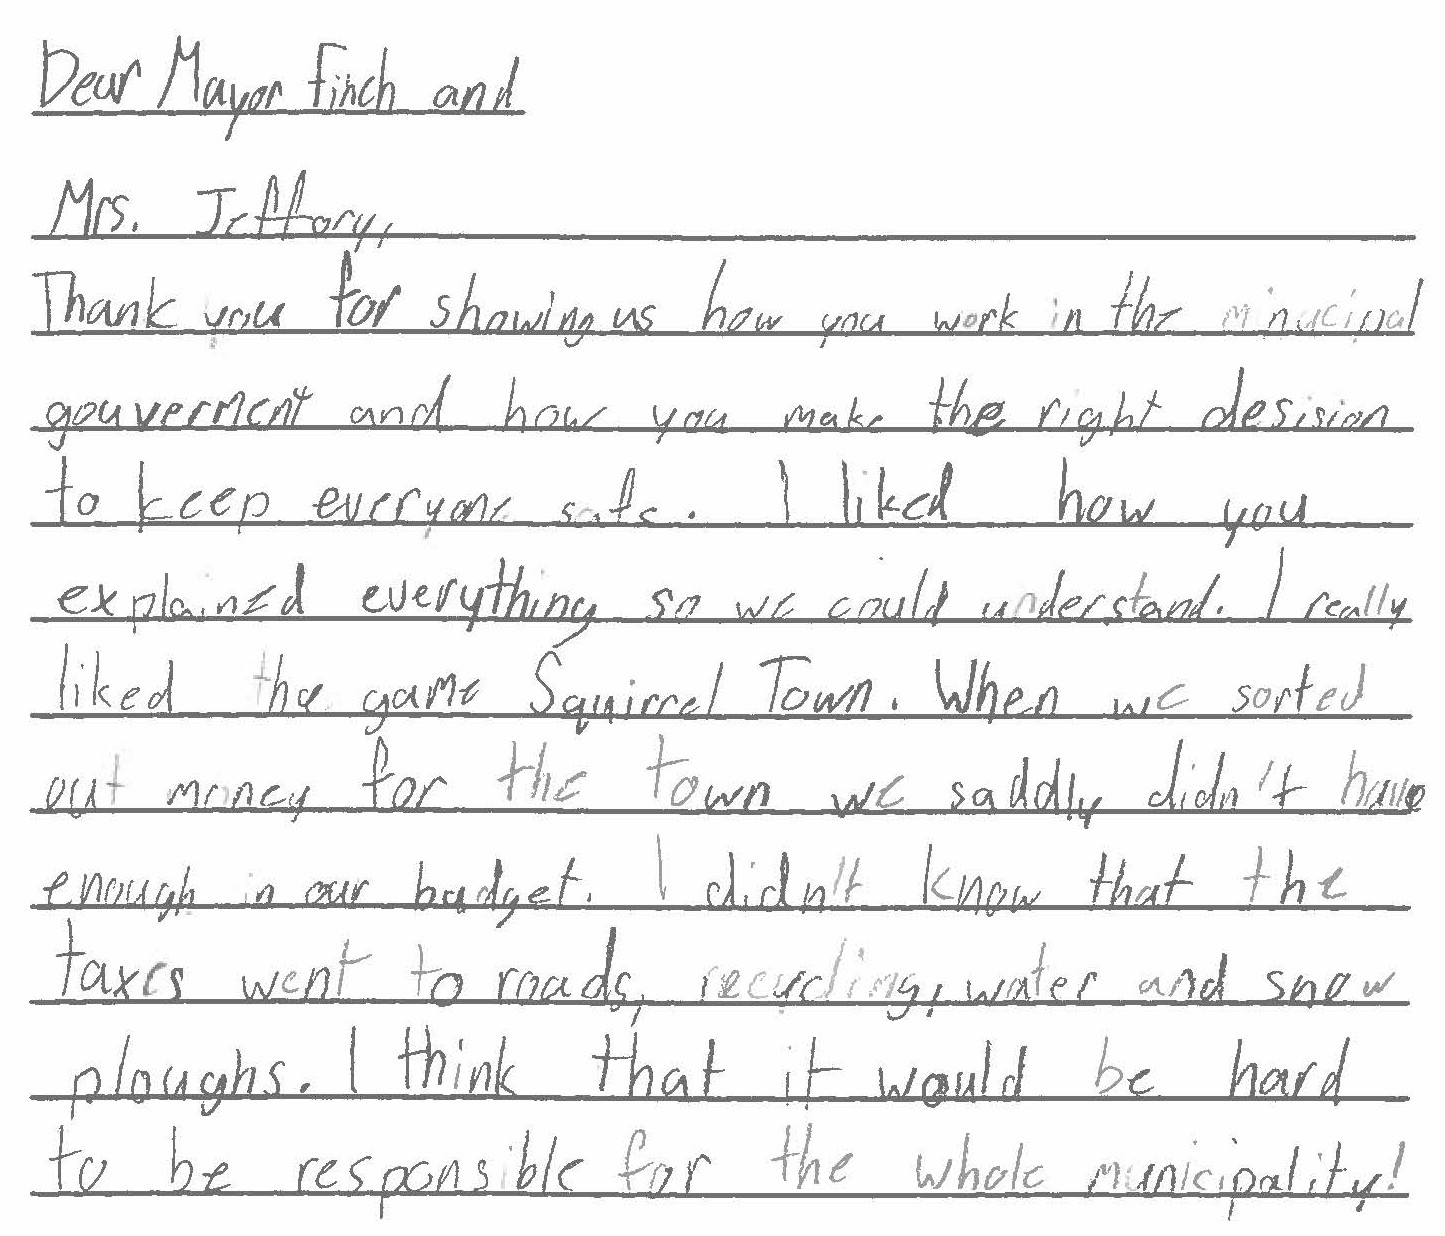 Dear Mayor Finch and
Mrs. Jeffory,
Thank you for showing us how you work in the minucipal
gouverment and how you make the right desision
to keep everyone safe. I liked how you
explained everything so we could understand. I really
liked the game Squirrel Town. When we sorted
out money for the town we saddly didn't have
enough in our budget. I didn't know that the
taxes went to roads, recycling, water and snow
ploughs. I think that it would be hard
to be responsible for the whole municipality!